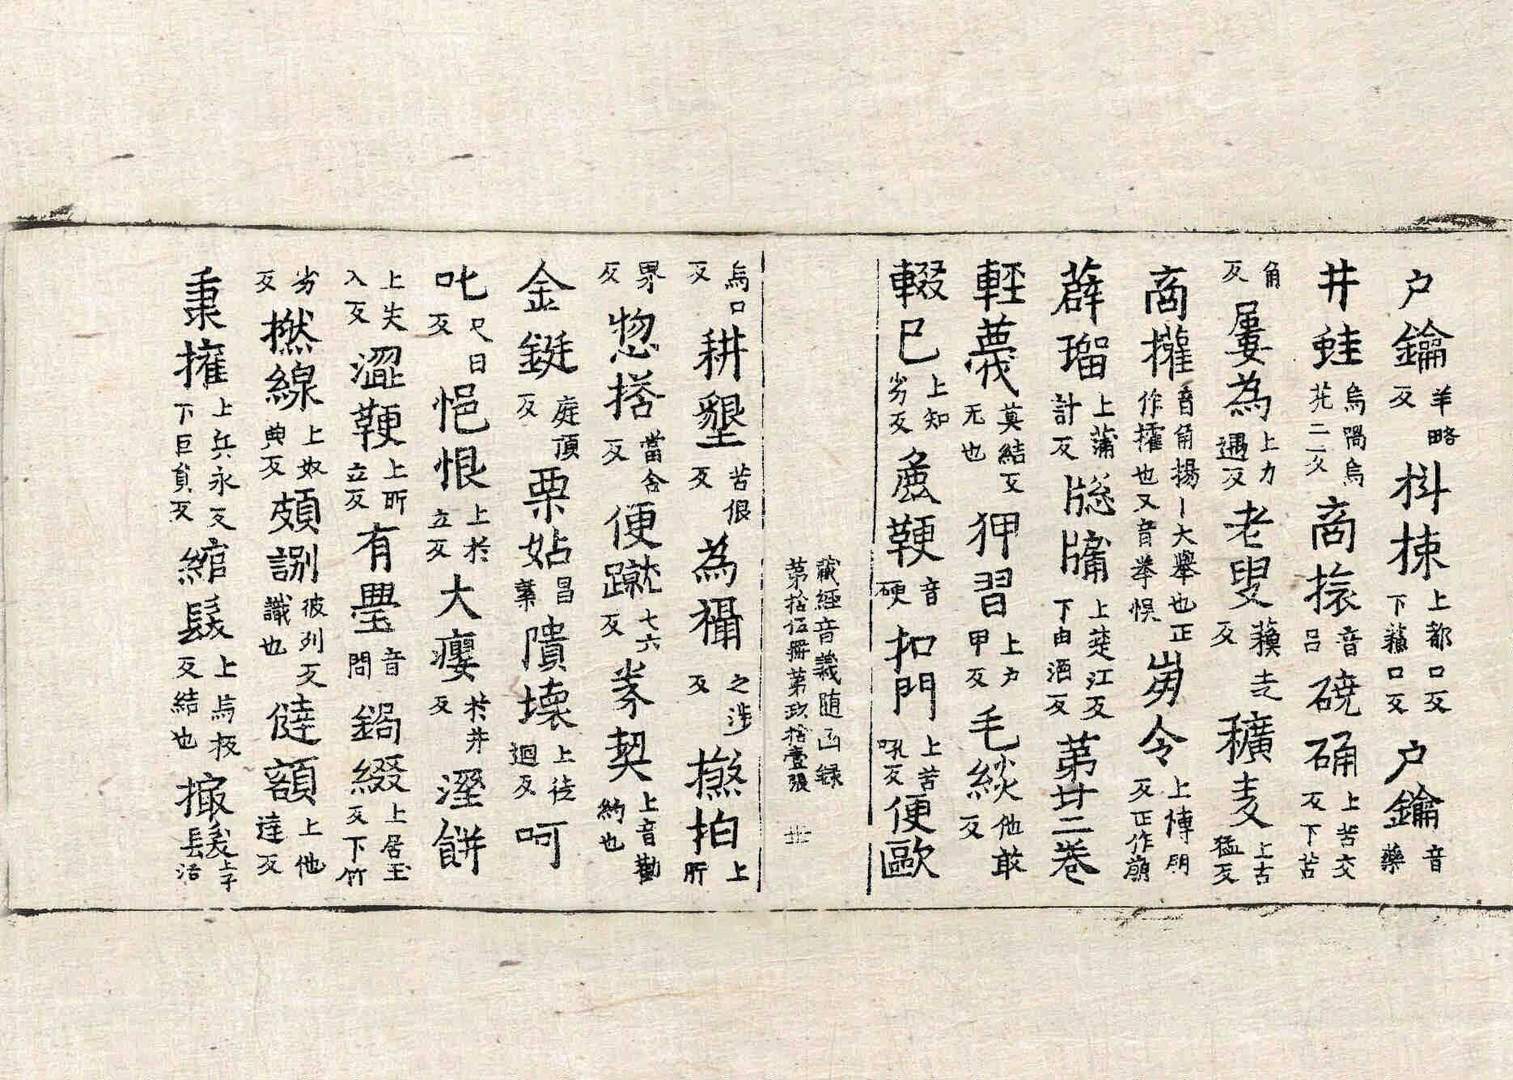 户鑰羊略反枓拺上都口反下蘓口反户鑰音藥
井蛙烏瓜烏苽二反商㨾音呂磽确上苦交反下苦
角反屢為上力遇反老叟蘓走反穬麦上古猛反
商搉音角揚丨大舉也正作搉也又音拳悮崩令上博朋反正作崩
薜瑠上蒲計反牎牖上楚江反下由酒反第廿二卷
輕蔑莫結反无也狎習上户甲反毛緂他敢反
輟巳上知劣反麁鞕音硬扣門上苦吼反便歐
藏經音義随函録
第拾伍冊第玖拾壹張
烏口反耕墾苦佷反為攝之涉反撚拍上所
界反惣撘當合反便蹴七六反券契上音勸約也
金鋌庭頂反栗姑昌葉隤壊上徒迴反呵
叱尺日反悒恨上扵立反大癭扵井反溼餅
上失入反澀鞕上所立反有璺音問鍋綴上居玉反下竹
劣反撚線上奴典反頗謝彼列反識也㒓額上他達反
秉擁上兵永反下巨負反綰髲上烏板反結也撮髲上子活